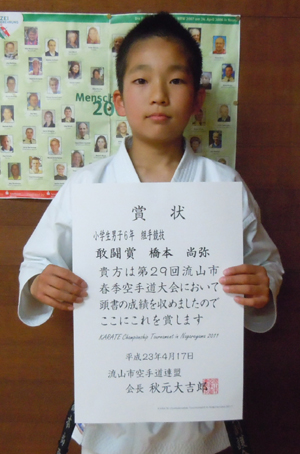 Mensch
20
賞 状
小学生男子6年 組手競技
敢闘賞 橋本 尚弥
貴方は第29回流山市
春季空手道大会において
頭書の成績を収めましたので
ここにこれを賞します
KARATE Championship Tournament in Nagareyama 2011
平成23年4月17日
流山市空手道連盟
会長 秋元大吉郎